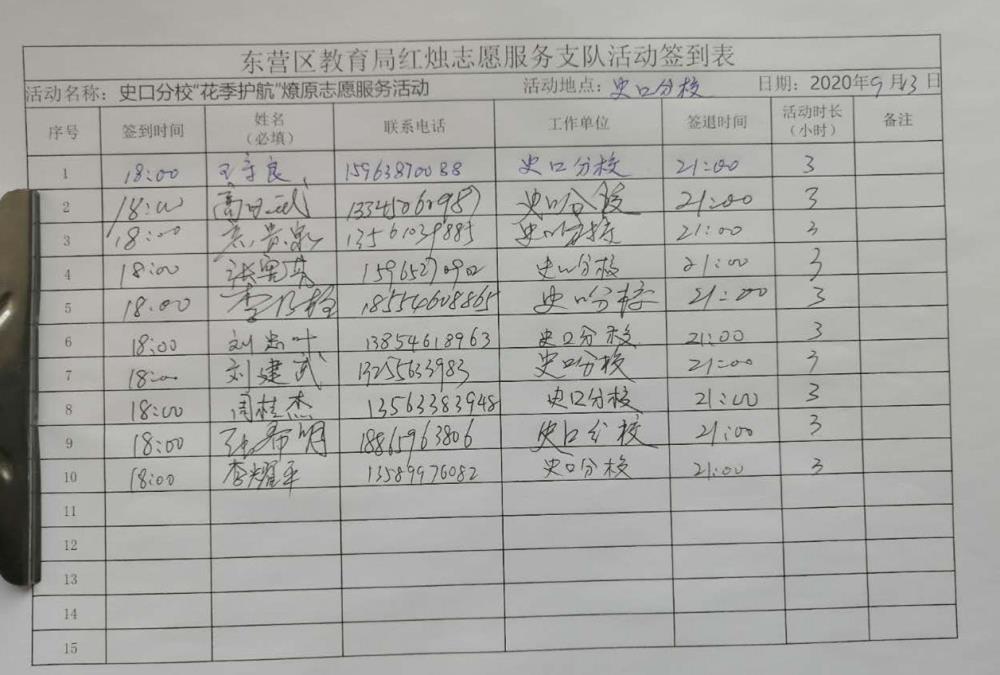 东营区教育局红烛志愿服务支队活动签到表
活动名称：史口分校“花季护航”燎原志愿服务活动 活动地点：史口分校 日期：2020年9月13日
序号 签到时间 姓名（必填） 联系电话 工作单位 签退时间 活动时长（小时） 备注
1 18:00 王守良 15963870088 史口分校 21:00 3
2 18:00 史口分校 21:00 3
3 18:00 13561039885 史口分校 21:00 3
4 18:00 15965270902 史口分校 21:00 3
5 18:00 18554608865 史口分校 21:00 3
6 18:00 刘忠叶 13854618963 史口分校 21:00 3
7 18:00 刘建武 13255633983 史口分校 21:00 3
8 18:00 周桂杰 13563383948 史口分校 21:00 3
9 18:00 张希明 18865963806 史口分校 21:00 3
10 18:00 李耀平 13589976082 史口分校 21:00 3
11
12
13
14
15